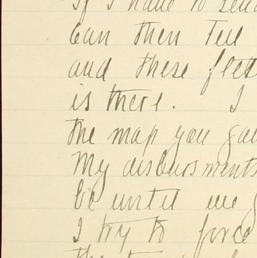 If I have to send
can then Tell
and these feet
is there. I
the map you gav
My disbursments
be until we g
I try to force